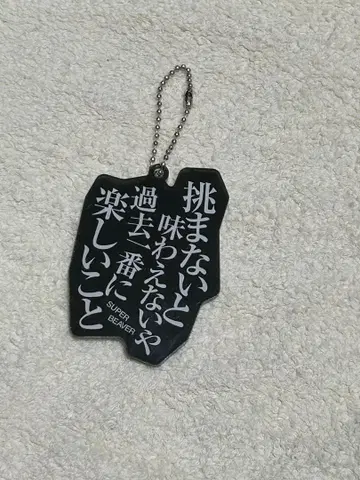 挑まないと
味わえないや
過去一番に
楽しいこと
SUPER
BEAVER